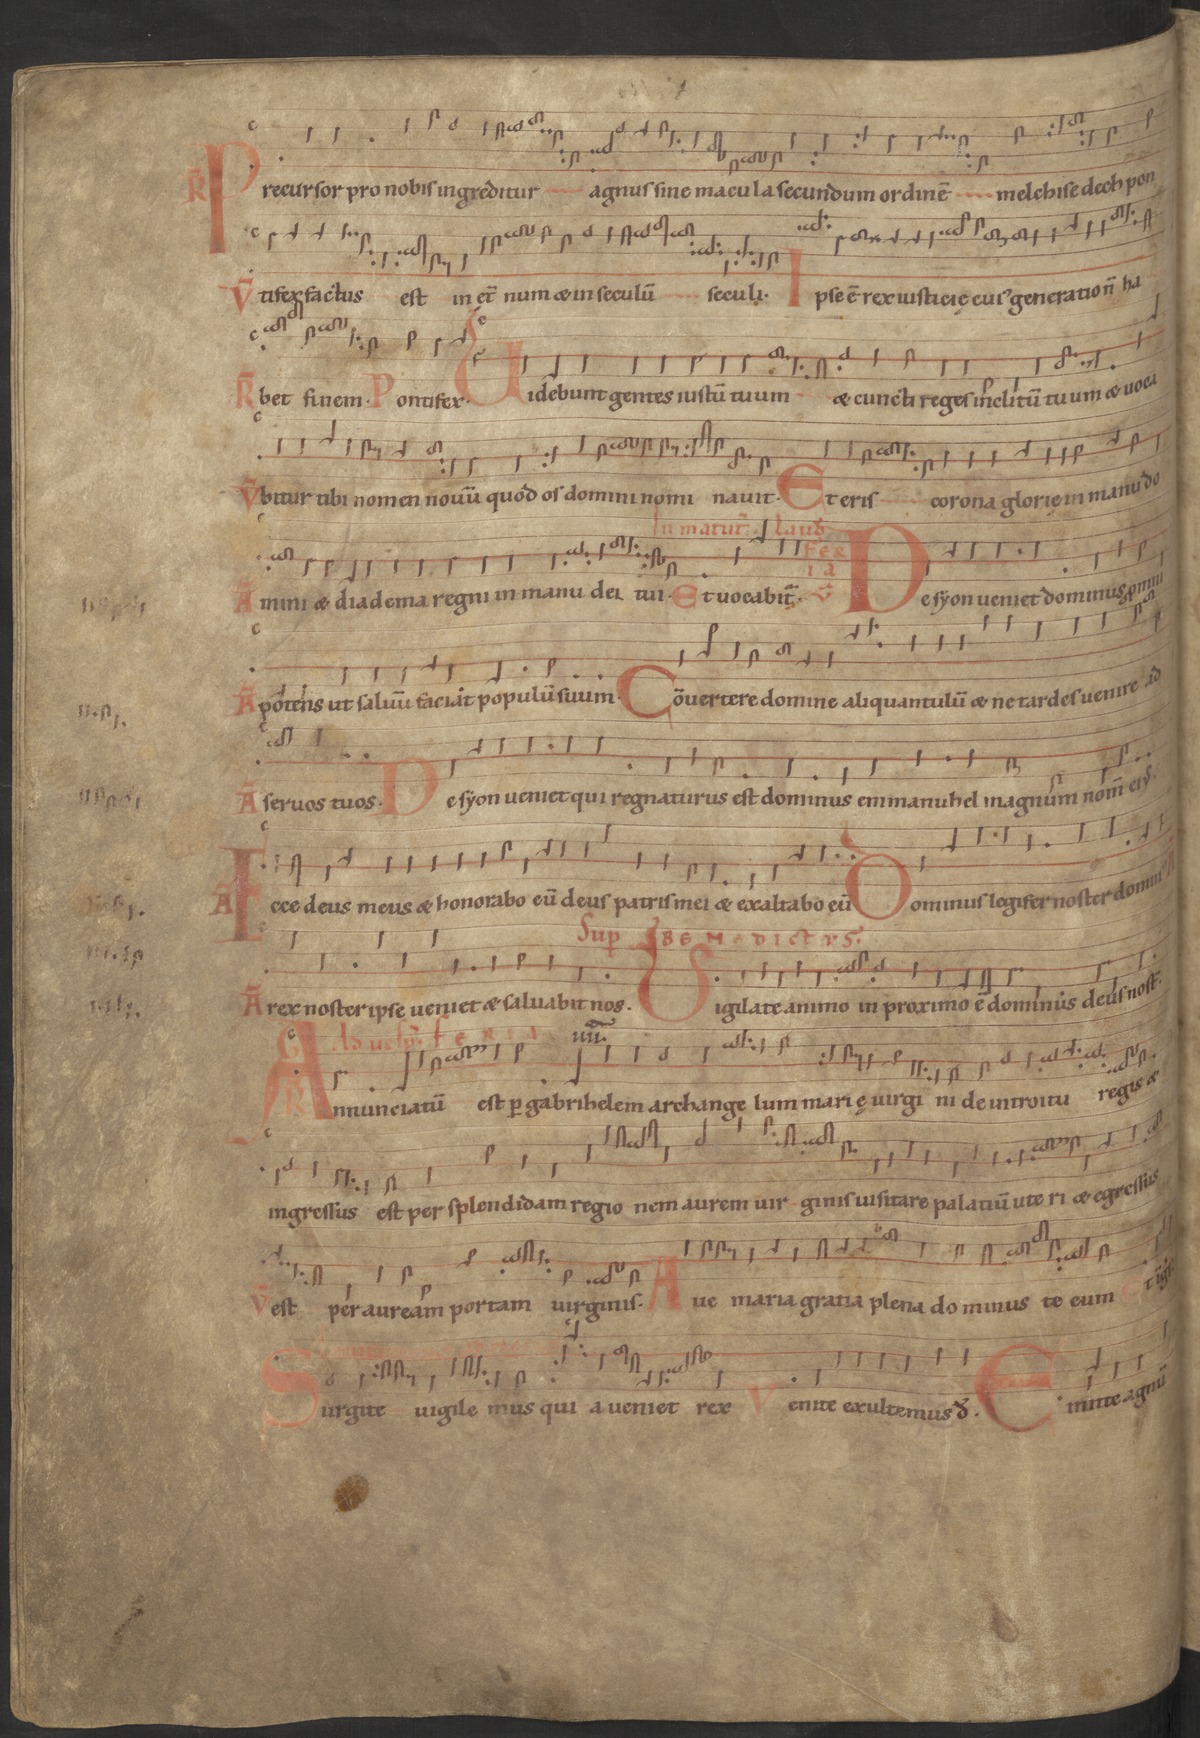 R̄ Precursor pro nobis ingreditur agnus sine macula secundum ordinē melchisedech pon
V̄ tifex factus est in et̄num & in seculū seculi. Ipse ē rex iusticię cui' generation̄ ha
R̄ bet finem. Pontifex. Uidebunt gentes iustū tuum & cuncti reges inclitū tuum & uoca
V̄ bitur tibi nomen nouū quod os domini nomi nauit. Et eris corona glorię in manu do
In matut̄. laud̄
Feria
Ā mini & diadema regni in manu dei tui. Et uocabit̄. V̄ De syon ueniet dominus omni
Ā potens ut saluū faciat populū suum. Cōuertere domine aliquantulū & ne tardes uenire ad
Ā seruos tuos. De syon ueniet qui regnaturus est dominus emmanuhel magnum nom̄ eius.
Ā Ecce deus meus & honorabo eū deus patris mei & exaltabo eū Dominus legifer noster dominus
Sup BENEDICTUS.
Ā rex noster ipse ueniet & saluabit nos. Uigilate animo in proximo ē dominus deus nost̄.
Ad uesp̄. feria iiii.
R̄ Annunciatū est p gabrihelem archange lum marię uirgi ni de introitu regis &
ingressus est per splendidam regio nem aurem uir ginis uisitare palatiū ute ri & egressus
V̄ est per auream portam uirginis. Aue maria gratia plena dominus te cum
Surgite uigile mus qui a ueniet rex V enite exultemus d̄. Emitte agnū